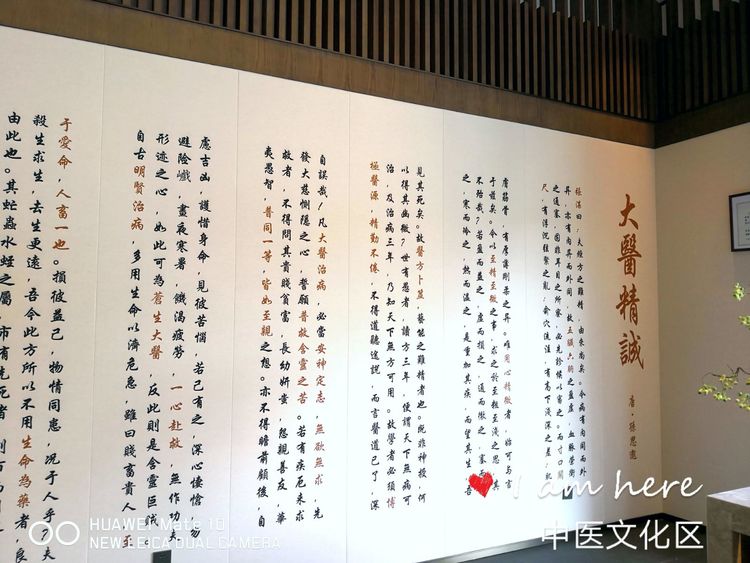 大醫精誠
唐·孫思邈
張湛曰：夫經方之難精，由來尚矣。今病有內同而外
異，亦有內異而外同，故五臟六腑之盈虛，血脈榮衛
之通塞，固非耳目之所察，必先診候以審之。而寸口關
尺，有浮沉弦緊之亂，俞穴流注，有高下淺深之差，肌
膚筋骨，有厚薄剛柔之異。唯用心精微者，始可與言
于兹矣。今以至精至微之事，求之於至粗至淺之思，其
不殆哉？若盈而益之，虛而損之，通而徹之，塞而
之，寒而冷之，熱而溫之，是重加其疾，而望其生，吾
見其死矣。故醫方卜筮，藝能之難精者也。既非神授，何
以得其幽微？世有愚者，讀方三年，便謂天下無病可
治，及治病三年，乃知天下無方可用。故學者必須博
極醫源，精勤不倦，不得道聽途說，而言醫道已了，深
自誤哉！凡大醫治病，必當安神定志，無欲無求，先
發大慈惻隱之心，誓願普救含靈之苦。若有疾厄來求
救者，不得問其貴賤貧富，長幼妍蚩，怨親善友，華
夷愚智，普同一等，皆如至親之想。亦不得瞻前顧後，自
慮吉凶，護惜身命，見彼苦惱，若己有之，深心悽愴，勿
避險巇，晝夜寒暑，飢渴疲勞，一心赴救，無作功夫
形迹之心，如此可為蒼生大醫，反此則是含靈巨賊。
自古明賢治病，多用生命以濟危急，雖曰賤畜貴人，至
于愛命，人畜一也。損彼益己，物情同患，況于人乎？夫
殺生求生，去生更遠。吾今此方所以不用生命為藥者，良
由此也。其虻蟲水蛭之屬，市有先死者，則
I am here
中医文化区
HUAWEI Mate 10
NEW LEICA DUAL CAMERA